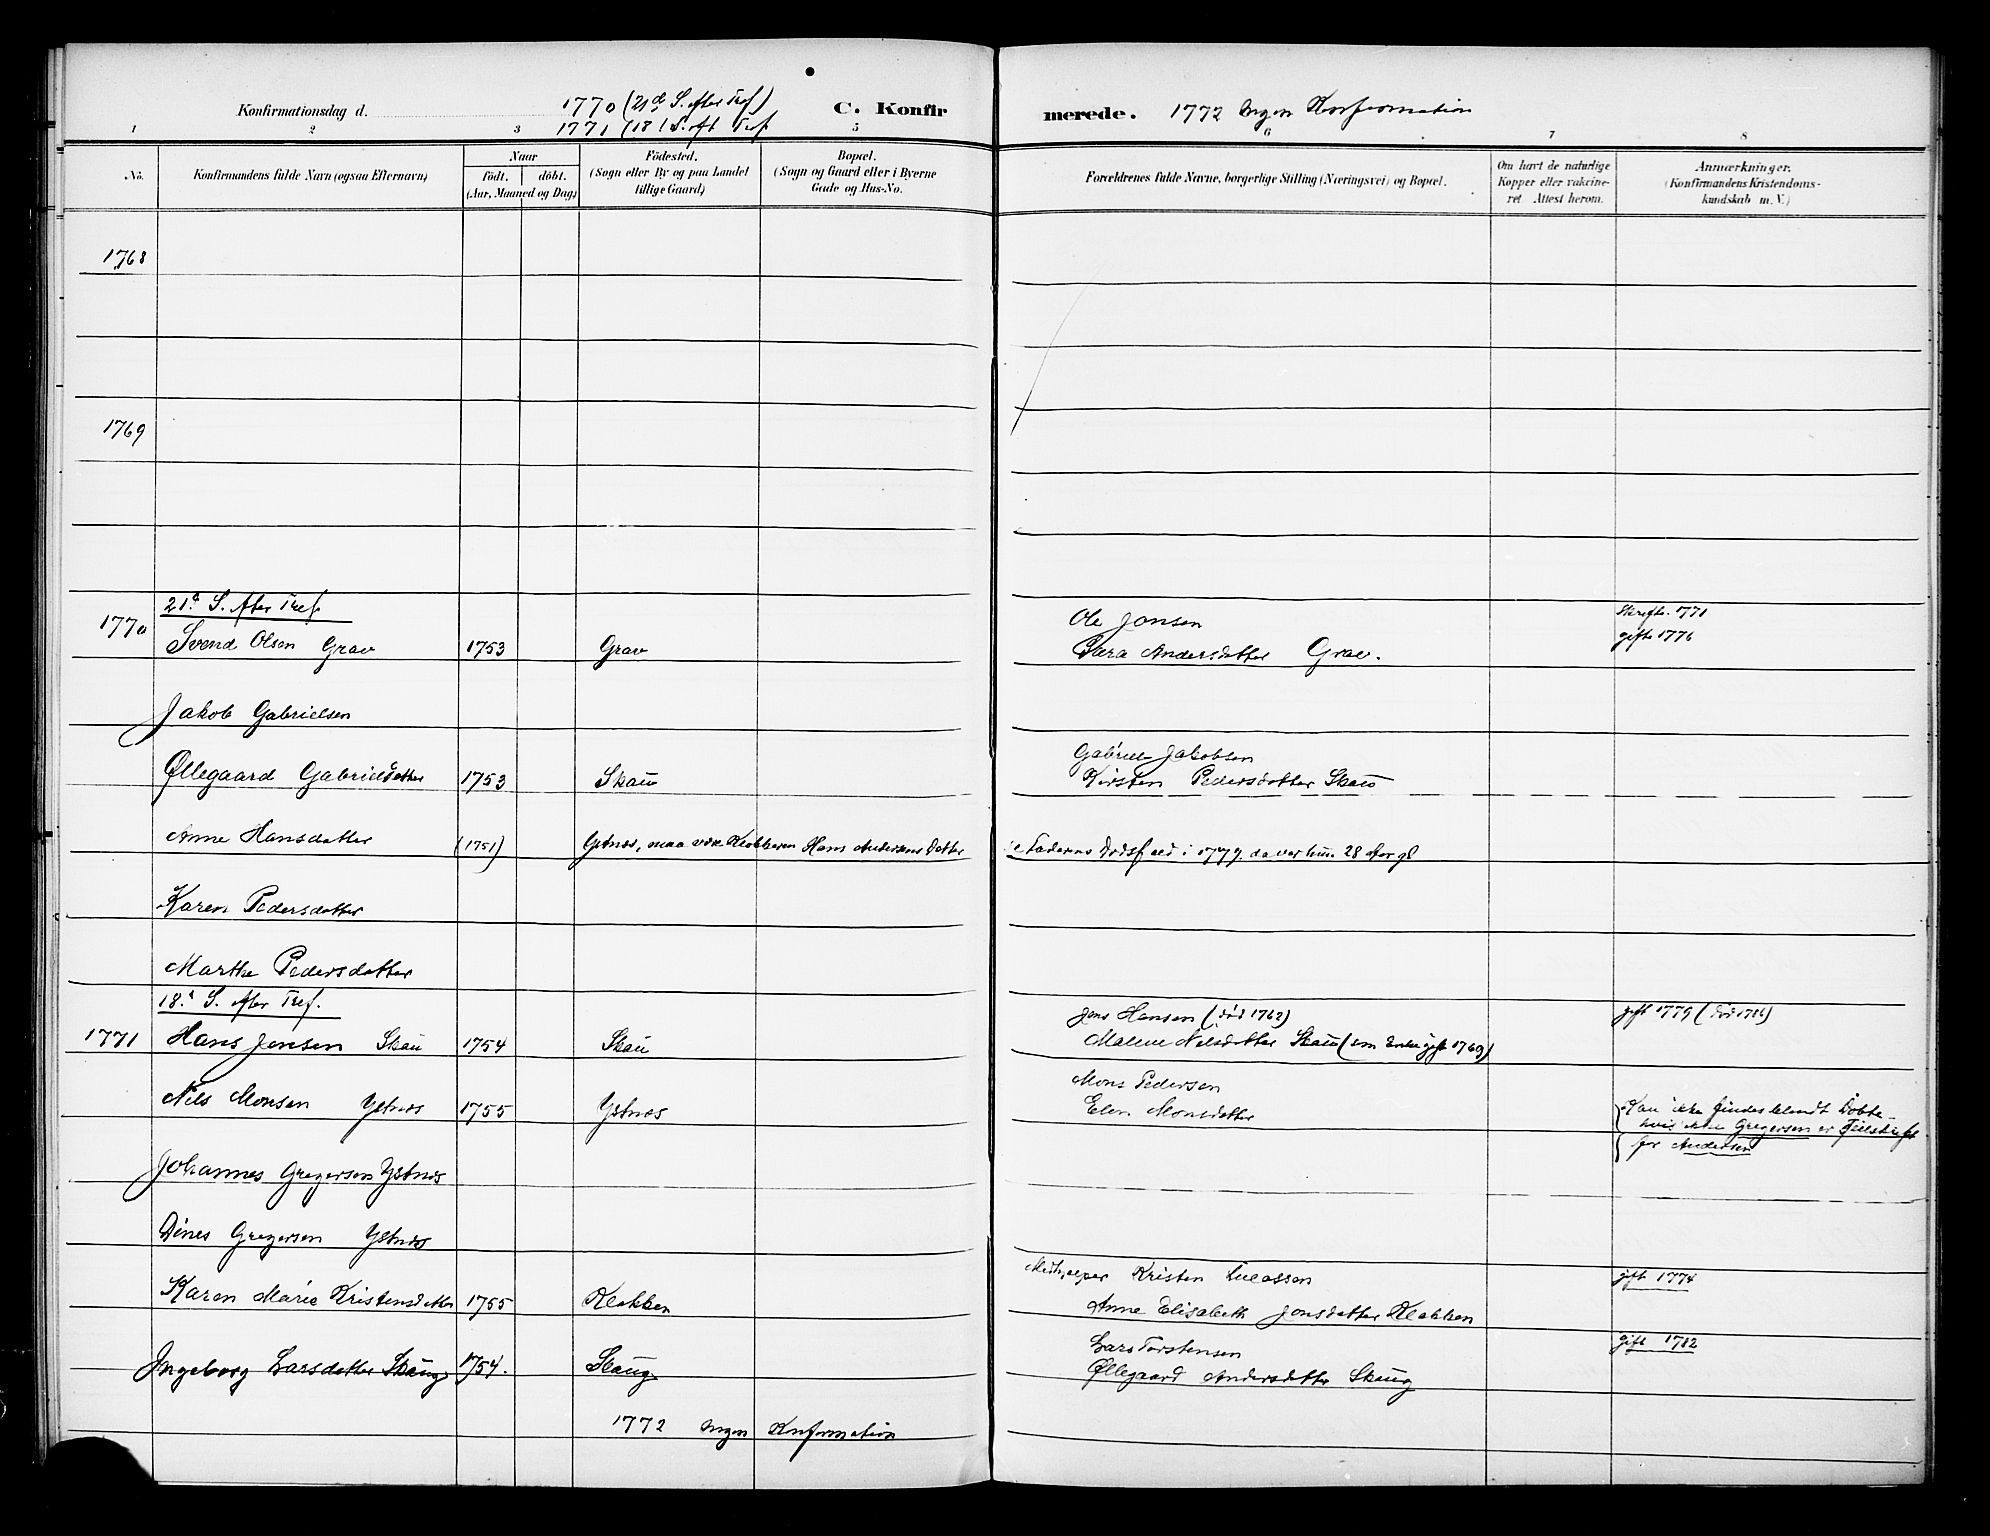 Konfirmationsdag d. 1770 (21d S. After Tref)
1771 (18 S. Aft Tref
C. Konfir
merede. 1772 Ingen Konfirmation
1 2 3 5 6 7 8
No.
Konfirmandens fulde Navn (ogsaa Efternavn)
Naar
födt. döbt.
(Aar, Maaned og Dag)
Födested.
(Sogn eller By og paa Landet
tillige Gaard)
Bopæl.
(Sogn og Gaard eller i Byerne
Gade og Hus-No.
Forældrenes fulde Navne, borgerlige Stilling (Næringsvei) og Bopæl.
Om havt de naturlige
Kopper eller vakcine-
ret Attest herom.
Anmærkninger.
(Konfirmandens Kristendoms-
kundskab m. V.)
1768
1769
21d S. After Tref.
1770 Svend Olsen Grav 1753 Grav
Ole Jonsen
Sara Andersdatter Grav.
Skrifte. 1771
gift 1776
Jakob Gabrielsen
Øllegaard Gabrielsdatter 1753 Skau
Gabriel Jakobsen
Kirsten Pedersdatter Skau
Anne Hansdatter (1751) Ystnes, maa være Klokkeren Hans Andersens Datter
Faderens Dødsfald i 1779. da var hun 28 Aar gl
Karen Pedersdatter
Marthe Pedersdatter
18d S. After Tref.
1771 Hans Jensen Skau 1754 Skau
Jens Hansen (død 1762)
Malene Nilsdatter Skau (som Enke gift 1769)
gift 1779 (død 1786)
Nils Monsen Ystnes 1755 Ystnes
Mons Pedersen
Elen Monsdatter
Kan ikke findes blandt Døbte
hvis ikke Gregersen er Feilskrift
for Andersen
Johannes Gregersen Ystnes
Dines Gregersen Ystnes
Karen Marie Kristensdatter 1755 Klokken
Medhjælper Kristen Lucassen
Anne Elisabeth Jonsdatter Klokken
gift 1774
Ingeborg Larsdatter Skaug 1754. Skaug
Lars Torstensen
Øllegaard Andersdatter Skaug
gift 1782
1772 Ingen Konfirmation